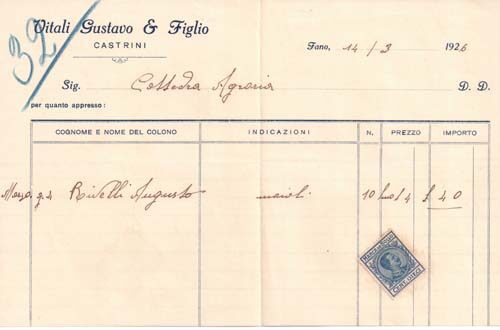 32
Vitali Gustavo & Figlio
CASTRINI
Fano, 14/3 1926
Sig. Cattedra Agraria D. D.
per quanto appresso:
COGNOME E NOME DEL COLONO INDICAZIONI N. PREZZO IMPORTO
Marzo g. 4 Rivelli Augusto maiali 10 £ 4 £ 40
MARCA DA BOLLO
CENT. DIECI